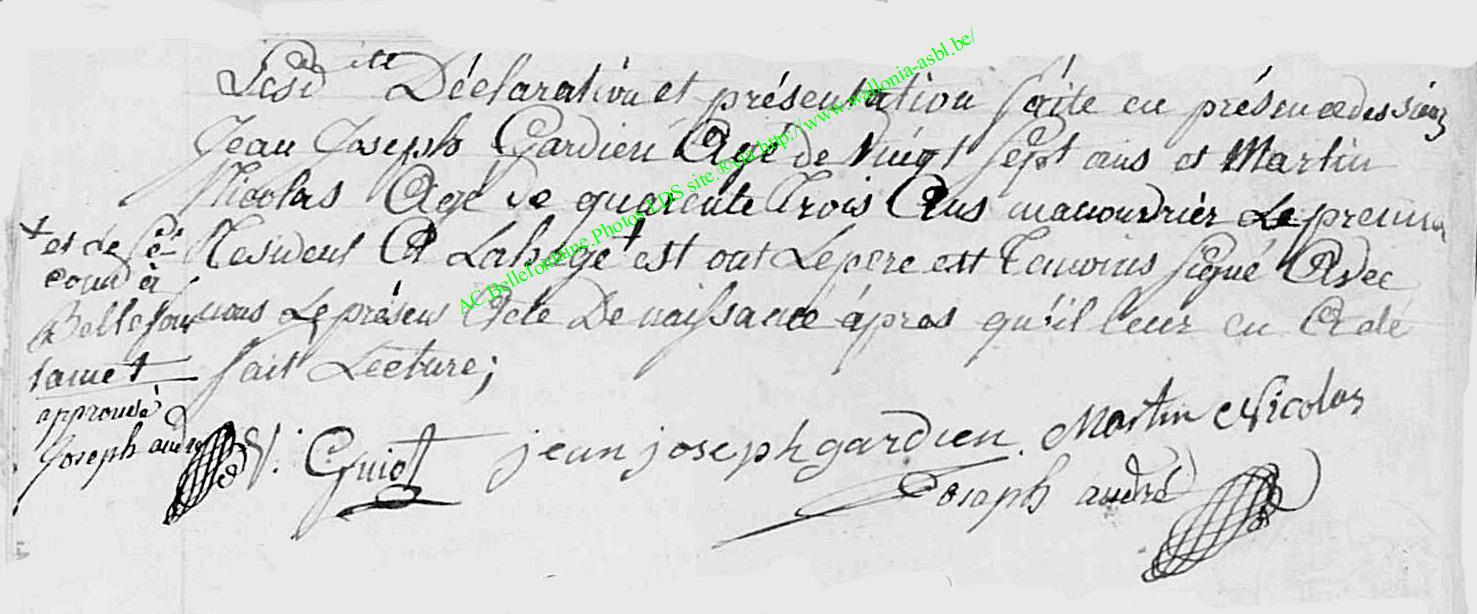 Lesdites Déclaration et présentation faite en présence des sieurs
Jean Joseph Gardien Agé de Vingt Sept ans et Martin
Nicolas Agé de quarente Trois Ans manouvrier Le premier
Resident A Lahage + est ont Le pere est Temoins Signé Avec
nous Le présent Acte De naissance àpres qu'il leur en A été
fait Lecture;
+ et le se-
cond à
Bellefon
taine +
approuvé
Joseph andré
V: Guiot
jean joseph gardien
Martin Nicolas
Joseph andré
AC Bellefontaine Photos LDS site © via http://www.wallonia-asbl.be/